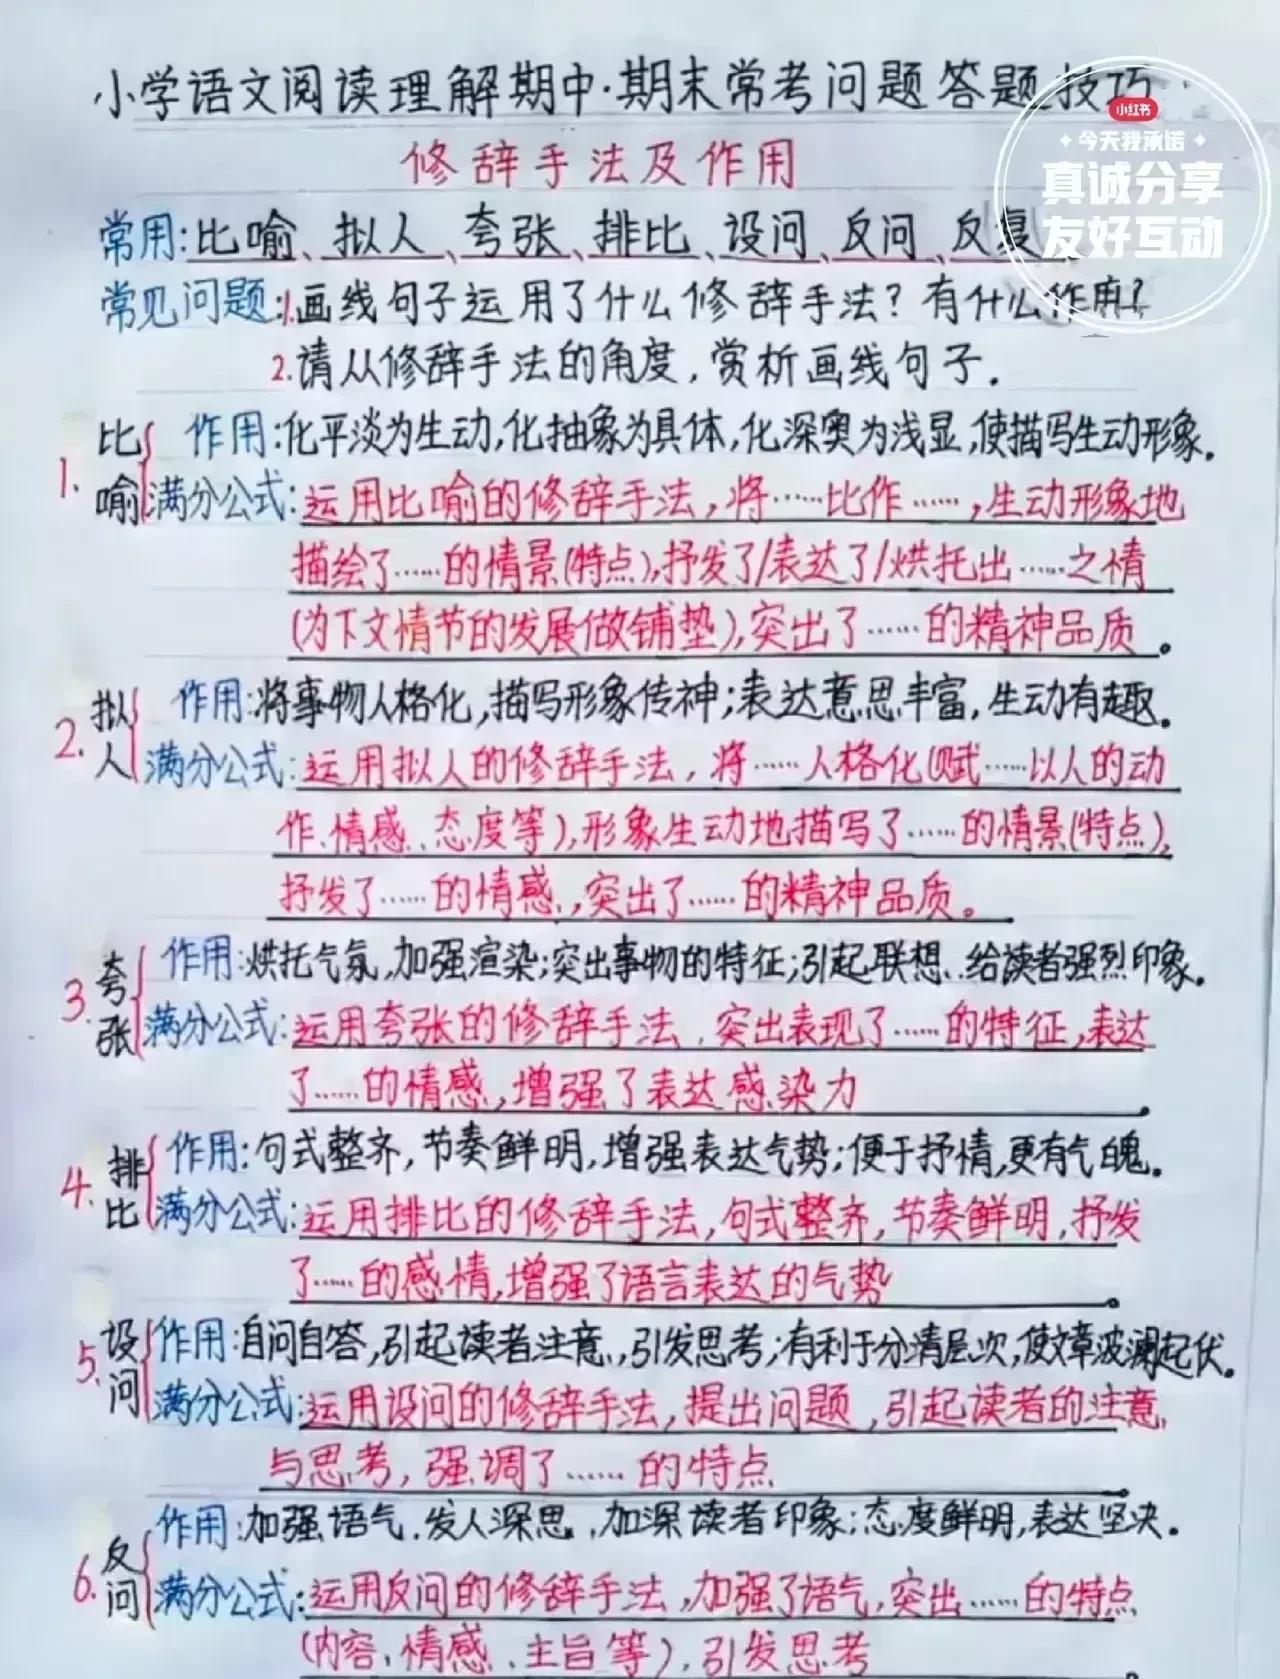 小学语文阅读理解期中·期末常考问题答题技巧
小红书
今天我承诺
真诚分享
友好互动
修辞手法及作用
常用:比喻、拟人、夸张、排比、设问、反问、反复
常见问题:1.画线句子运用了什么修辞手法?有什么作用?
2.请从修辞手法的角度,赏析画线句子.
1.比喻
作用:化平淡为生动,化抽象为具体,化深奥为浅显,使描写生动形象.
满分公式:运用比喻的修辞手法,将……比作……,生动形象地
描绘了……的情景(特点),抒发了/表达了/烘托出……之情
(为下文情节的发展做铺垫),突出了……的精神品质。
2.拟人
作用:将事物人格化,描写形象传神;表达意思丰富,生动有趣.
满分公式:运用拟人的修辞手法,将……人格化(赋……以人的动
作、情感、态度等),形象生动地描写了……的情景(特点),
抒发了……的情感,突出了……的精神品质。
3.夸张
作用:烘托气氛,加强渲染;突出事物的特征;引起联想,给读者强烈印象.
满分公式:运用夸张的修辞手法,突出表现了……的特征,表达
了……的情感,增强了表达感染力.
4.排比
作用:句式整齐,节奏鲜明,增强表达气势;便于抒情,更有气魄.
满分公式:运用排比的修辞手法,句式整齐,节奏鲜明,抒发
了……的感情,增强了语言表达的气势。
5.设问
作用:自问自答,引起读者注意,引发思考;有利于分清层次,使文章波澜起伏.
满分公式:运用设问的修辞手法,提出问题,引起读者的注意
与思考,强调了……的特点。
6.反问
作用:加强语气,发人深思,加深读者印象;态度鲜明,表达坚决.
满分公式:运用反问的修辞手法,加强了语气,突出……的特点
(内容、情感、主旨等),引发思考